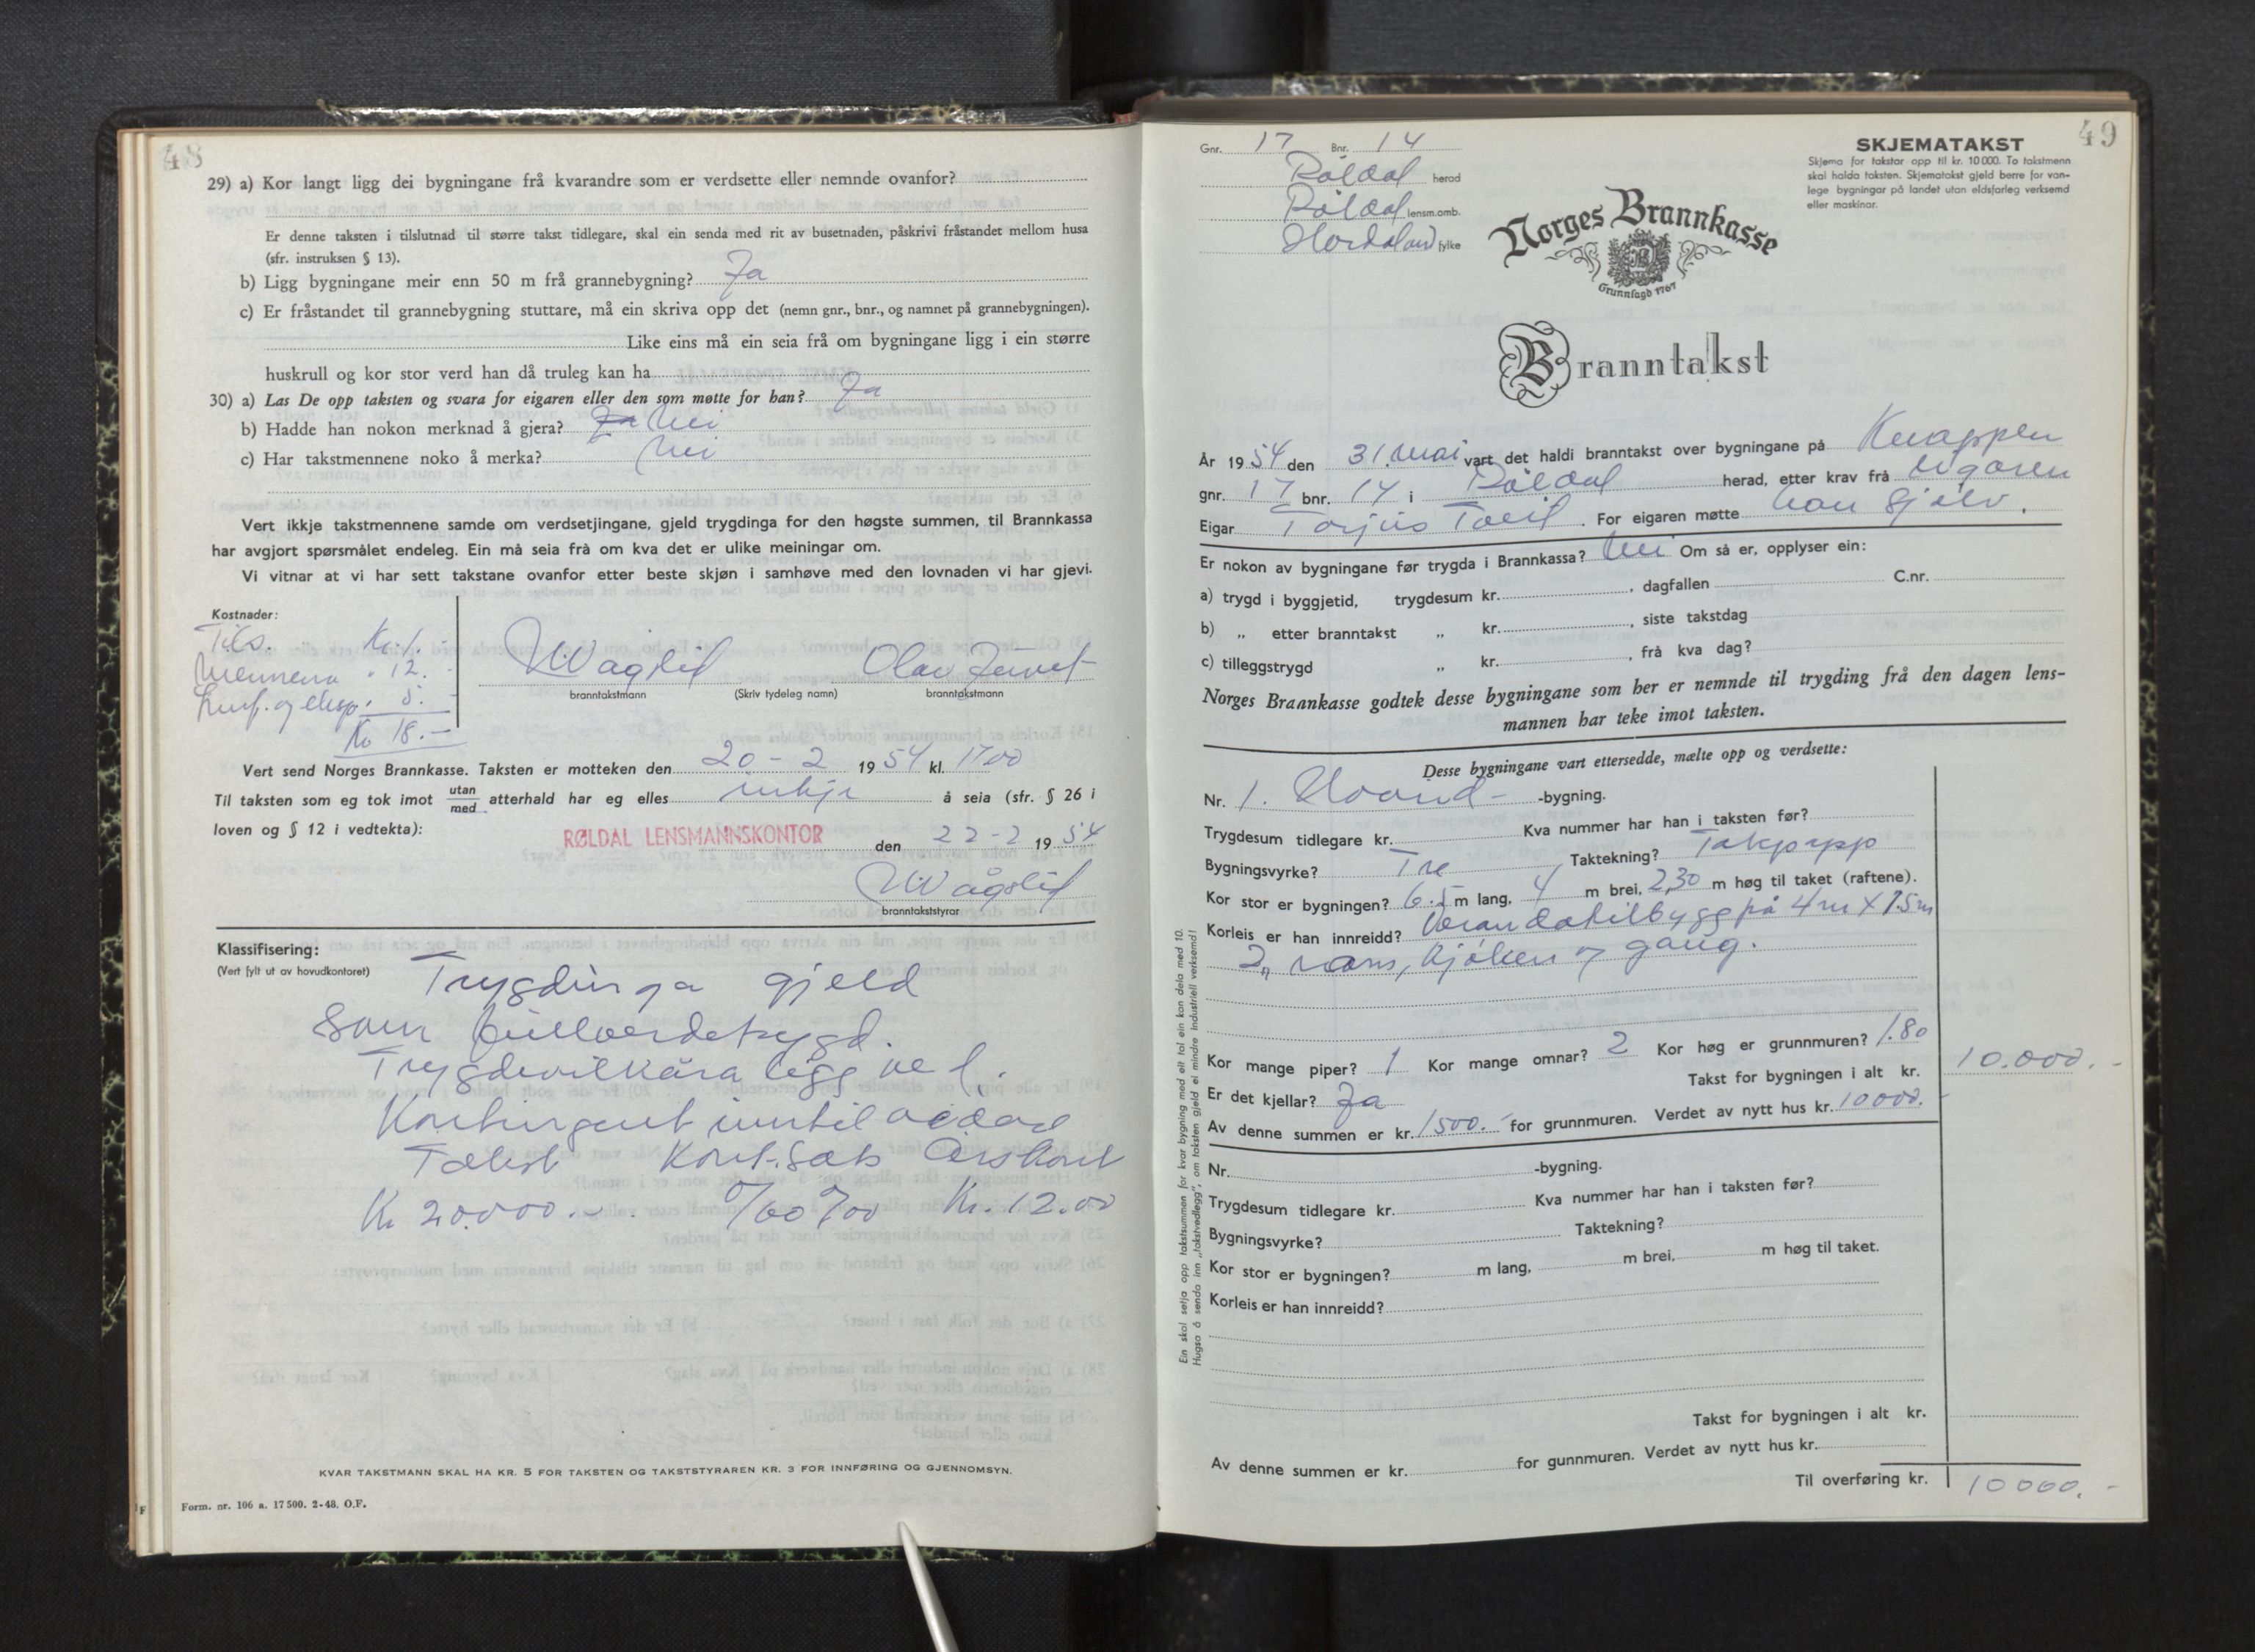 48
29) a) Kor langt ligg dei bygningane frå kvarandre som er verdsette eller nemnde ovanfor?
Er denne taksten i tilslutnad til større takst tidlegare, skal ein senda med rit av busetnaden, påskrivi fråstandet mellom husa
(sfr. instruksen § 13).
b) Ligg bygningane meir enn 50 m frå grannebygning? Ja
c) Er fråstandet til grannebygning stuttare, må ein skriva opp det (nemn gnr., bnr., og namnet på grannebygningen).
Like eins må ein seia frå om bygningane ligg i ein større
huskrull og kor stor verd han då truleg kan ha
30) a) Las De opp taksten og svara for eigaren eller den som møtte for han? Ja
b) Hadde han nokon merknad å gjera? Ja Nei
c) Har takstmennene noko å merka? Nei
Vert ikkje takstmennene samde om verdsetjingane, gjeld trygdinga for den høgste summen, til Brannkassa
har avgjort spørsmålet endeleg. Ein må seia frå om kva det er ulike meiningar om.
Vi vitnar at vi har sett takstane ovanfor etter beste skjøn i samhøve med den lovnaden vi har gjevi.
Kostnader:
Tils. Kr. 1.
Mennena " 12.-
" 5.-
Kr 18.-
Wågslid Olav
branntakstmann (Skriv tydeleg namn) branntakstmann
Vert send Norges Brannkasse. Taksten er motteken den 20-2 1954 kl. 1700
Til taksten som eg tok imot utan/med atterhald har eg elles inkje å seia (sfr. § 26 i
loven og § 12 i vedtekta):
RØLDAL LENSMANNSKONTOR den 22-2 1954
Wågslid
branntakststyrar
Klassifisering:
(Vert fylt ut av hovudkontoret)
Trygdinga gjeld
som fullverdetrygd.
Trygdevilkåra ligg ve l.
Kontingent inntil vidare
Takst Kont.sats Årskont
Kr 20.000.- 0/60 0/00 Kr. 12.00
KVAR TAKSTMANN SKAL HA KR. 5 FOR TAKSTEN OG TAKSTSTYRAREN KR. 3 FOR INNFØRING OG GJENNOMSYN.
F
Form. nr. 106 a. 17500. 2-48. O.F.
49
Gnr. 17 Bnr. 14
Røldal herad
Røldal lensm.omb.
Hordaland fylke
SKJEMATAKST
Skjema for takstar opp til kr. 10 000. To takstmenn
skal halda taksten. Skjematakst gjeld berre for van-
lege bygningar på landet utan eldsfarleg verksemd
eller maskinar.
Norges Brannkasse
Grunnlagd 1767
Branntakst
År 1954 den 31. Mai vart det haldi branntakst over bygningane på Knappen
gnr. 17 bnr. 14 i Røldal herad, etter krav frå eigaren
Eigar Torjus . For eigaren møtte han sjølv.
Er nokon av bygningane før trygda i Brannkassa? Nei Om så er, opplyser ein:
a) trygd i byggjetid, trygdesum kr. , dagfallen C.nr.
b) „ etter branntakst „ kr. , siste takstdag
c) tilleggstrygd „ kr. , frå kva dag?
Norges Braankasse godtek desse bygningane som her er nemnde til trygding frå den dagen lens-
mannen har teke imot taksten.
Desse bygningane vart ettersedde, mælte opp og verdsette:
Nr. 1. -bygning.
Trygdesum tidlegare kr. Kva nummer har han i taksten før?
Bygningsvyrke? Tre Taktekning? Takpapp
Kor stor er bygningen? 6.5 m lang, 4 m brei, 2,30 m høg til taket (raftene).
Korleis er han innreidd? Verandatilbygg på 4m X 1.5m
2 rom, kjøken og gang.
Kor mange piper? 1 Kor mange omnar? 2 Kor høg er grunnmuren? 1.80
Takst for bygningen i alt kr. 10.000.-
Er det kjellar? Ja
Av denne summen er kr. 1500.- for grunnmuren. Verdet av nytt hus kr. 10000.-
Nr. -bygning.
Trygdesum tidlegare kr. Kva nummer har han i taksten før?
Bygningsvyrke? Taktekning?
Kor stor er bygningen? m lang, m brei, m høg til taket.
Korleis er han innreidd?
Takst for bygningen i alt kr.
Av denne summen er kr. for gunnmuren. Verdet av nytt hus kr.
Til overføring kr. 10000.-
Ein skal setja opp takstsummen for kvar bygning med eit tal ein kan dela med 10.
Hugsa å senda inn „takstvedlegg", om taksten gjeld ei mindre industriell verksemd!